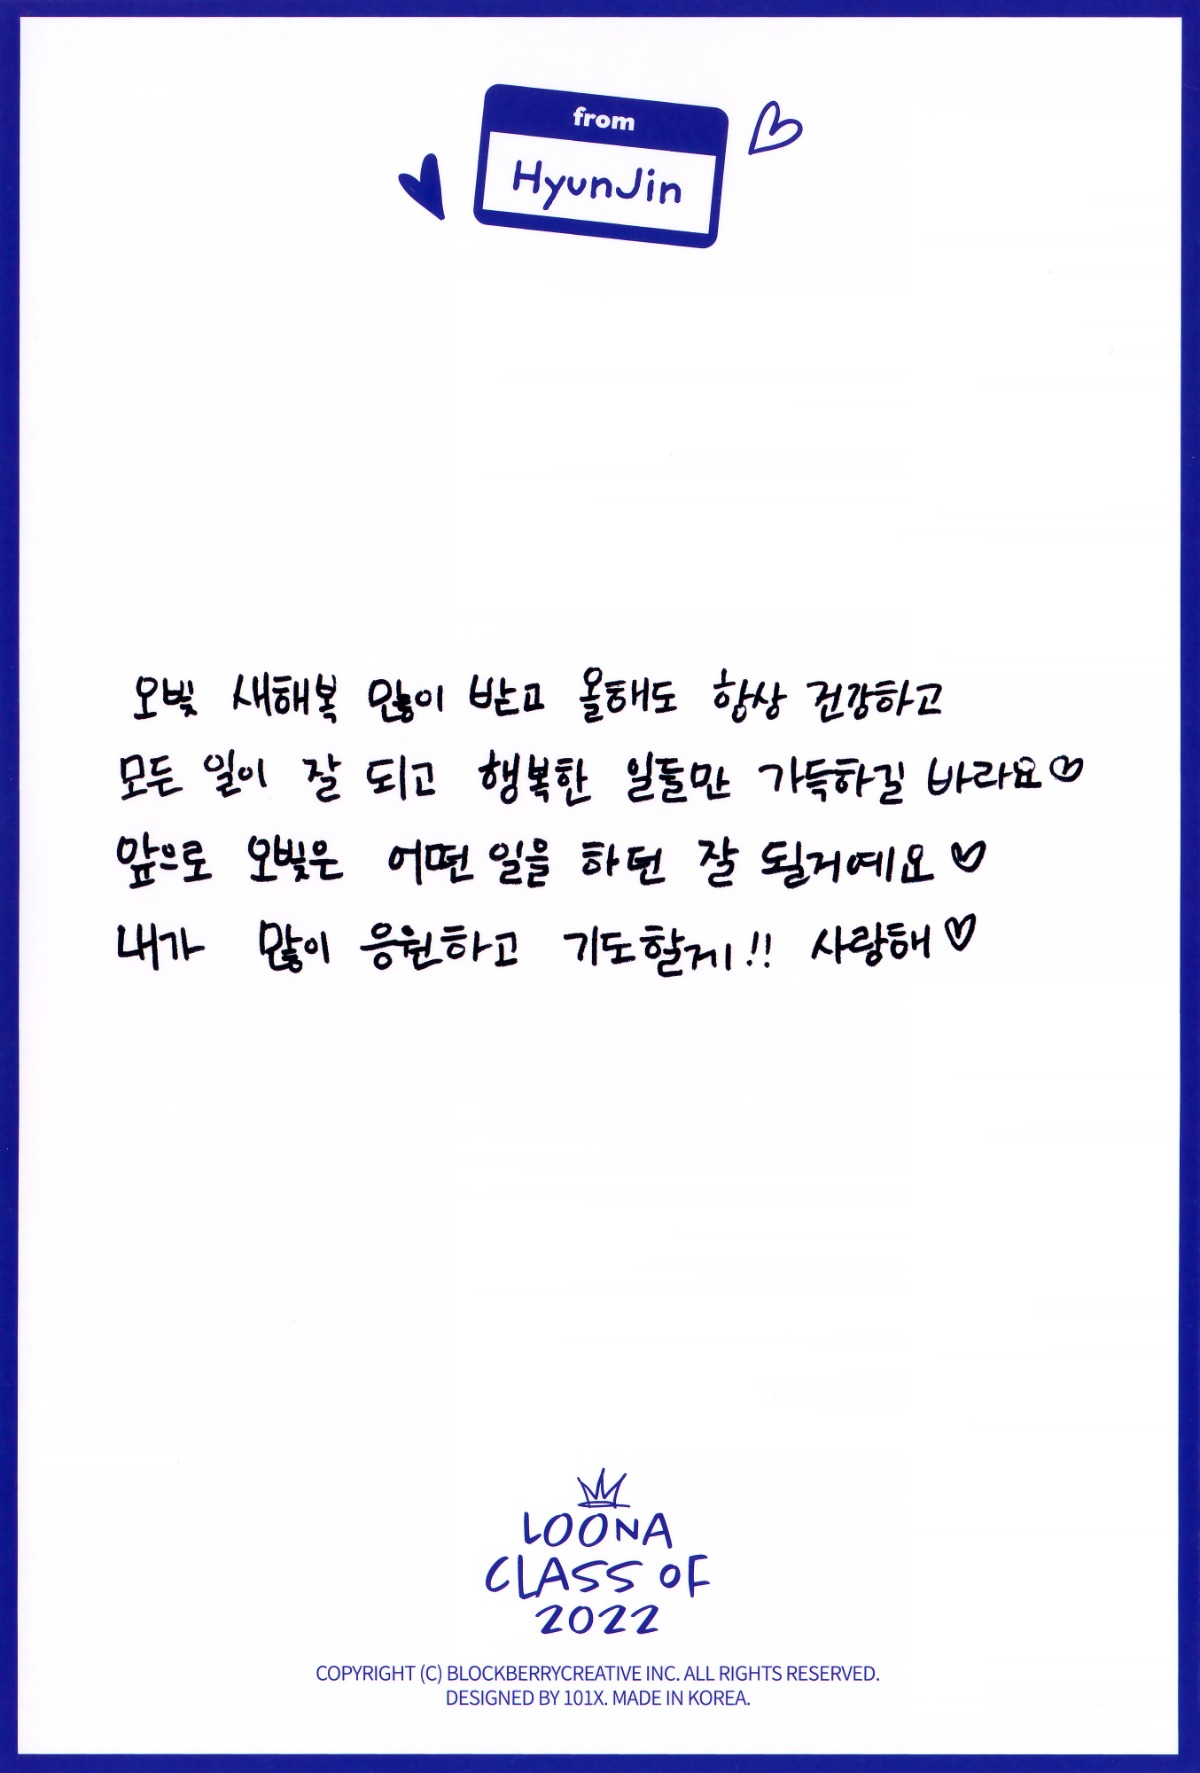 from
HyunJin
오빛 새해복 많이 받고 올해도 항상 건강하고
모든 일이 잘 되고 행복한 일들만 가득하길 바라요♡
앞으로 오빛은 어떤 일을 하던 잘 될거예요♡
내가 많이 응원하고 기도할게!! 사랑해♡
LOONA
CLASS OF
2022
COPYRIGHT (C) BLOCKBERRYCREATIVE INC. ALL RIGHTS RESERVED.
DESIGNED BY 101X. MADE IN KOREA.